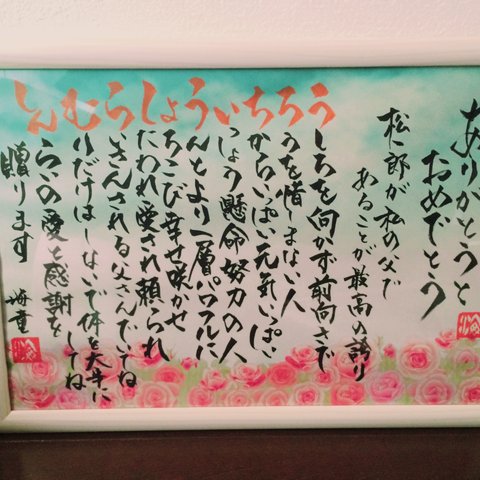 しんむらしょういちろう
ありがとうと
おめでとう
松一郎が私の父で
あることが最高の誇り
しろを向かず前向きで
うを惜しまない人
からいっぱい元気いっぱい
っしょう懸命努力の人
んとより一層パワフルに
ろこび幸せ咲かせ
たわれ愛され頼られ
いさんされる父さんでいてね
りだけはしないで体を大事にしてね
らの愛と感謝を
贈ります